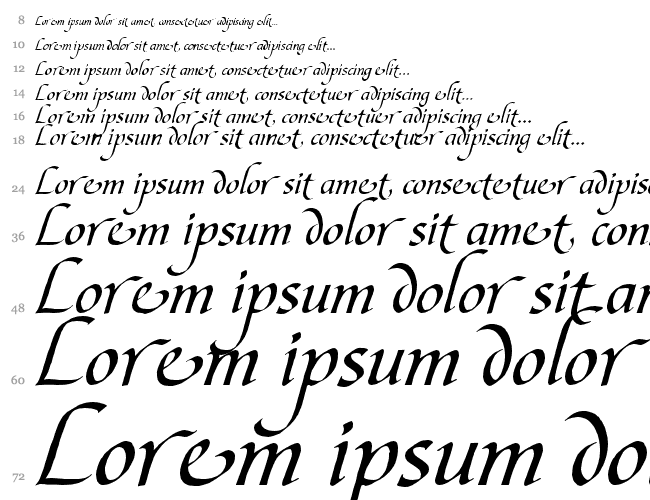 8 Lorem ipsum dolor sit amet, consectetuer adipiscing elit...
10 Lorem ipsum dolor sit amet, consectetuer adipiscing elit...
12 Lorem ipsum dolor sit amet, consectetuer adipiscing elit...
14 Lorem ipsum dolor sit amet, consectetuer adipiscing elit...
16 Lorem ipsum dolor sit amet, consectetuer adipiscing elit...
18 Lorem ipsum dolor sit amet, consectetuer adipiscing elit...
24 Lorem ipsum dolor sit amet, consectetuer adipis
36 Lorem ipsum dolor sit amet, con
48 Lorem ipsum dolor sit a
60 Lorem ipsum dolor
72 Lorem ipsum do